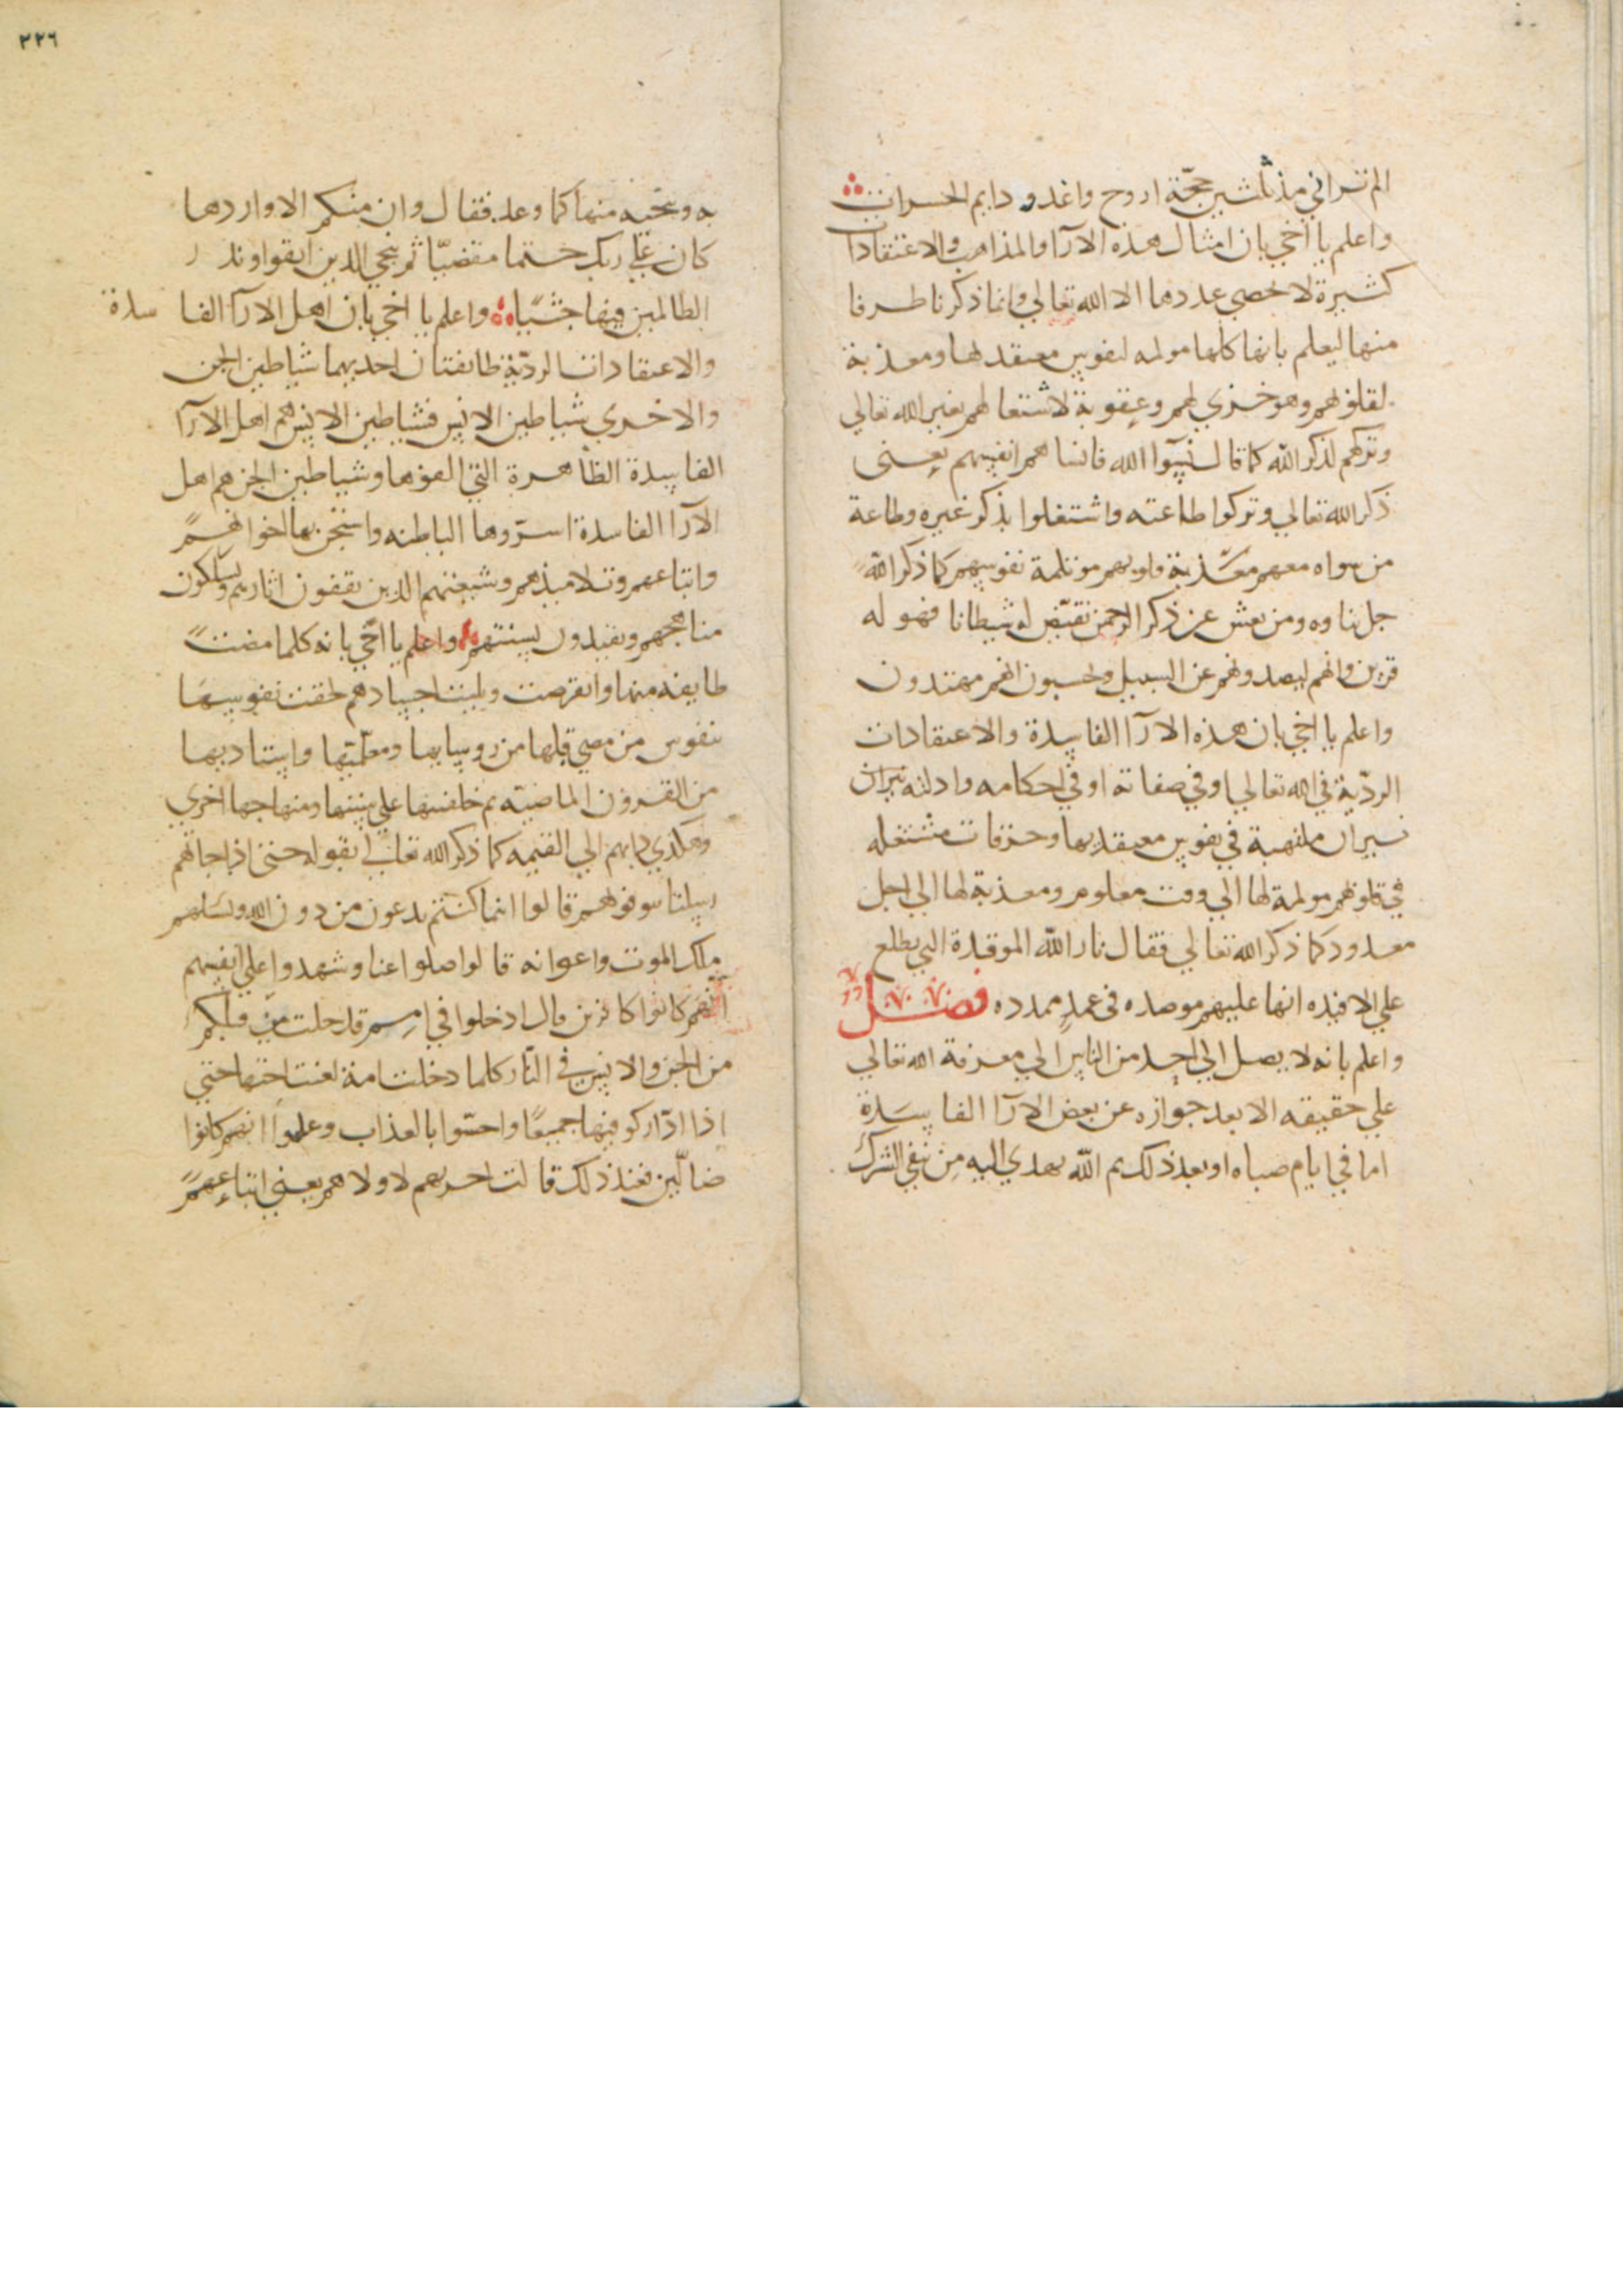 الم تراني مذ ثلثين حجّة اروح واغدو دايم الحسرات
واعلم يا اخي بان امثال هذه الارآ والمذاهب والاعتقادات
كثيرة لا تحصي عددها الا الله تعالي وانما ذكرنا طرفا
منها ليعلم بانها كلها مولمه لنفوس معتقدها ومعذبة
لقلوبهم وهو خزي لهم وعقوبة لاشتغالهم بغير الله تعالي
وتركهم لذكر الله كما قال نسوا الله فانساهم انفسهم يعني
ذكر الله تعالي وتركوا طاعته واشتغلوا بذكر غيره وطاعة
من سواه معهم معذبة قلوبهم موتلمة نفوسهم كما ذكر الله
جل ثناوه ومن يعش عن ذكر الرحمن نقيّض له شيطانا فهو له
قرين وانهم ليصدونهم عن السبيل ويحسبون انهم مهتدون
واعلم يا اخي بان هذه الارآ الفاسدة والاعتقادات
الرديّة في الله تعالي او في صفاته او في احكامه وادلته نيران
نيران ملتهبة في نفوس معتقديها وحرقات مشتعله
في قلوبهم مولمة لها الي وقت معلوم ومعذبة لها الي اجل
معدود كما ذكر الله تعالي فقال نار الله الموقدة التي يطلع
علي الافيده انها عليهم موصده في عمدٍ ممدده فصل
واعلم بانه لا يصل الي احد من الناس الي معرفة الله تعالي
علي حقيقه الا بعد جوازه عن بعض الارآ الفاسدة
اما في ايام صباه او بعد ذلك ثم الله يهدي اليه من نفي الشرك
٢٢٦
به وينجيه منها كما وعد فقال وان منكم الا واردها
كان علي ربك حتما مقضيّا ثم ننجي الذين اتقوا ونذر
الظالمين فيها جثيًا واعلم يا اخي بان اهل الارآ الفاسدة
والاعتقادات الرديّة طايفتان احديهما شياطين الجن
والاخري شياطين الانس فشياطين الانس هم اهل الارآ
الفاسدة الظاهرة التي الفوها وشياطين الجن هم اهل
الارآ الفاسدة اسرّوها الباطنه بها اخوانهم
واتباعهم وتلاميذهم وشيعتهم الذين يقفون اثارهم ويسلكون
مناهجهم ويقتدون بسنتهم واعلم يا اخي بانه كلما مضت
طايفه منها وانقرضت وبليت اجسادهم لحقت نفوسها
بنفوس من مضي قبلها من روسايها ومعلّميها واستاديها
من القرون الماضيه ثم خلفتها علي سنتها ومنهاجها اخري
وهكذي دابهم الي القيمه كما ذكر الله تعالي بقوله حتي اذا جاتهم
رسلنا يتوفونهم قالوا اينما كنتم تدعون من دون الله
ملك الموت واعوانه قالوا ضلوا عنا وشهدوا علي انفسهم
انهم كانوا كافرين قال ادخلوا في امم قد خلت من قبلكم
من الجن والانس في النّار كلما دخلت امة لعنت اختها حتي
اذا ادّاركوا فيها جميعًا واحسّوا بالعذاب وعلموا انهم كانوا
ضالّين فعند ذلك قالت اخريهم لاولاهم يعني اتباعهم